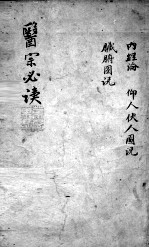 內經論 仰人伏人圖說
臟腑圖說
醫宗必讀